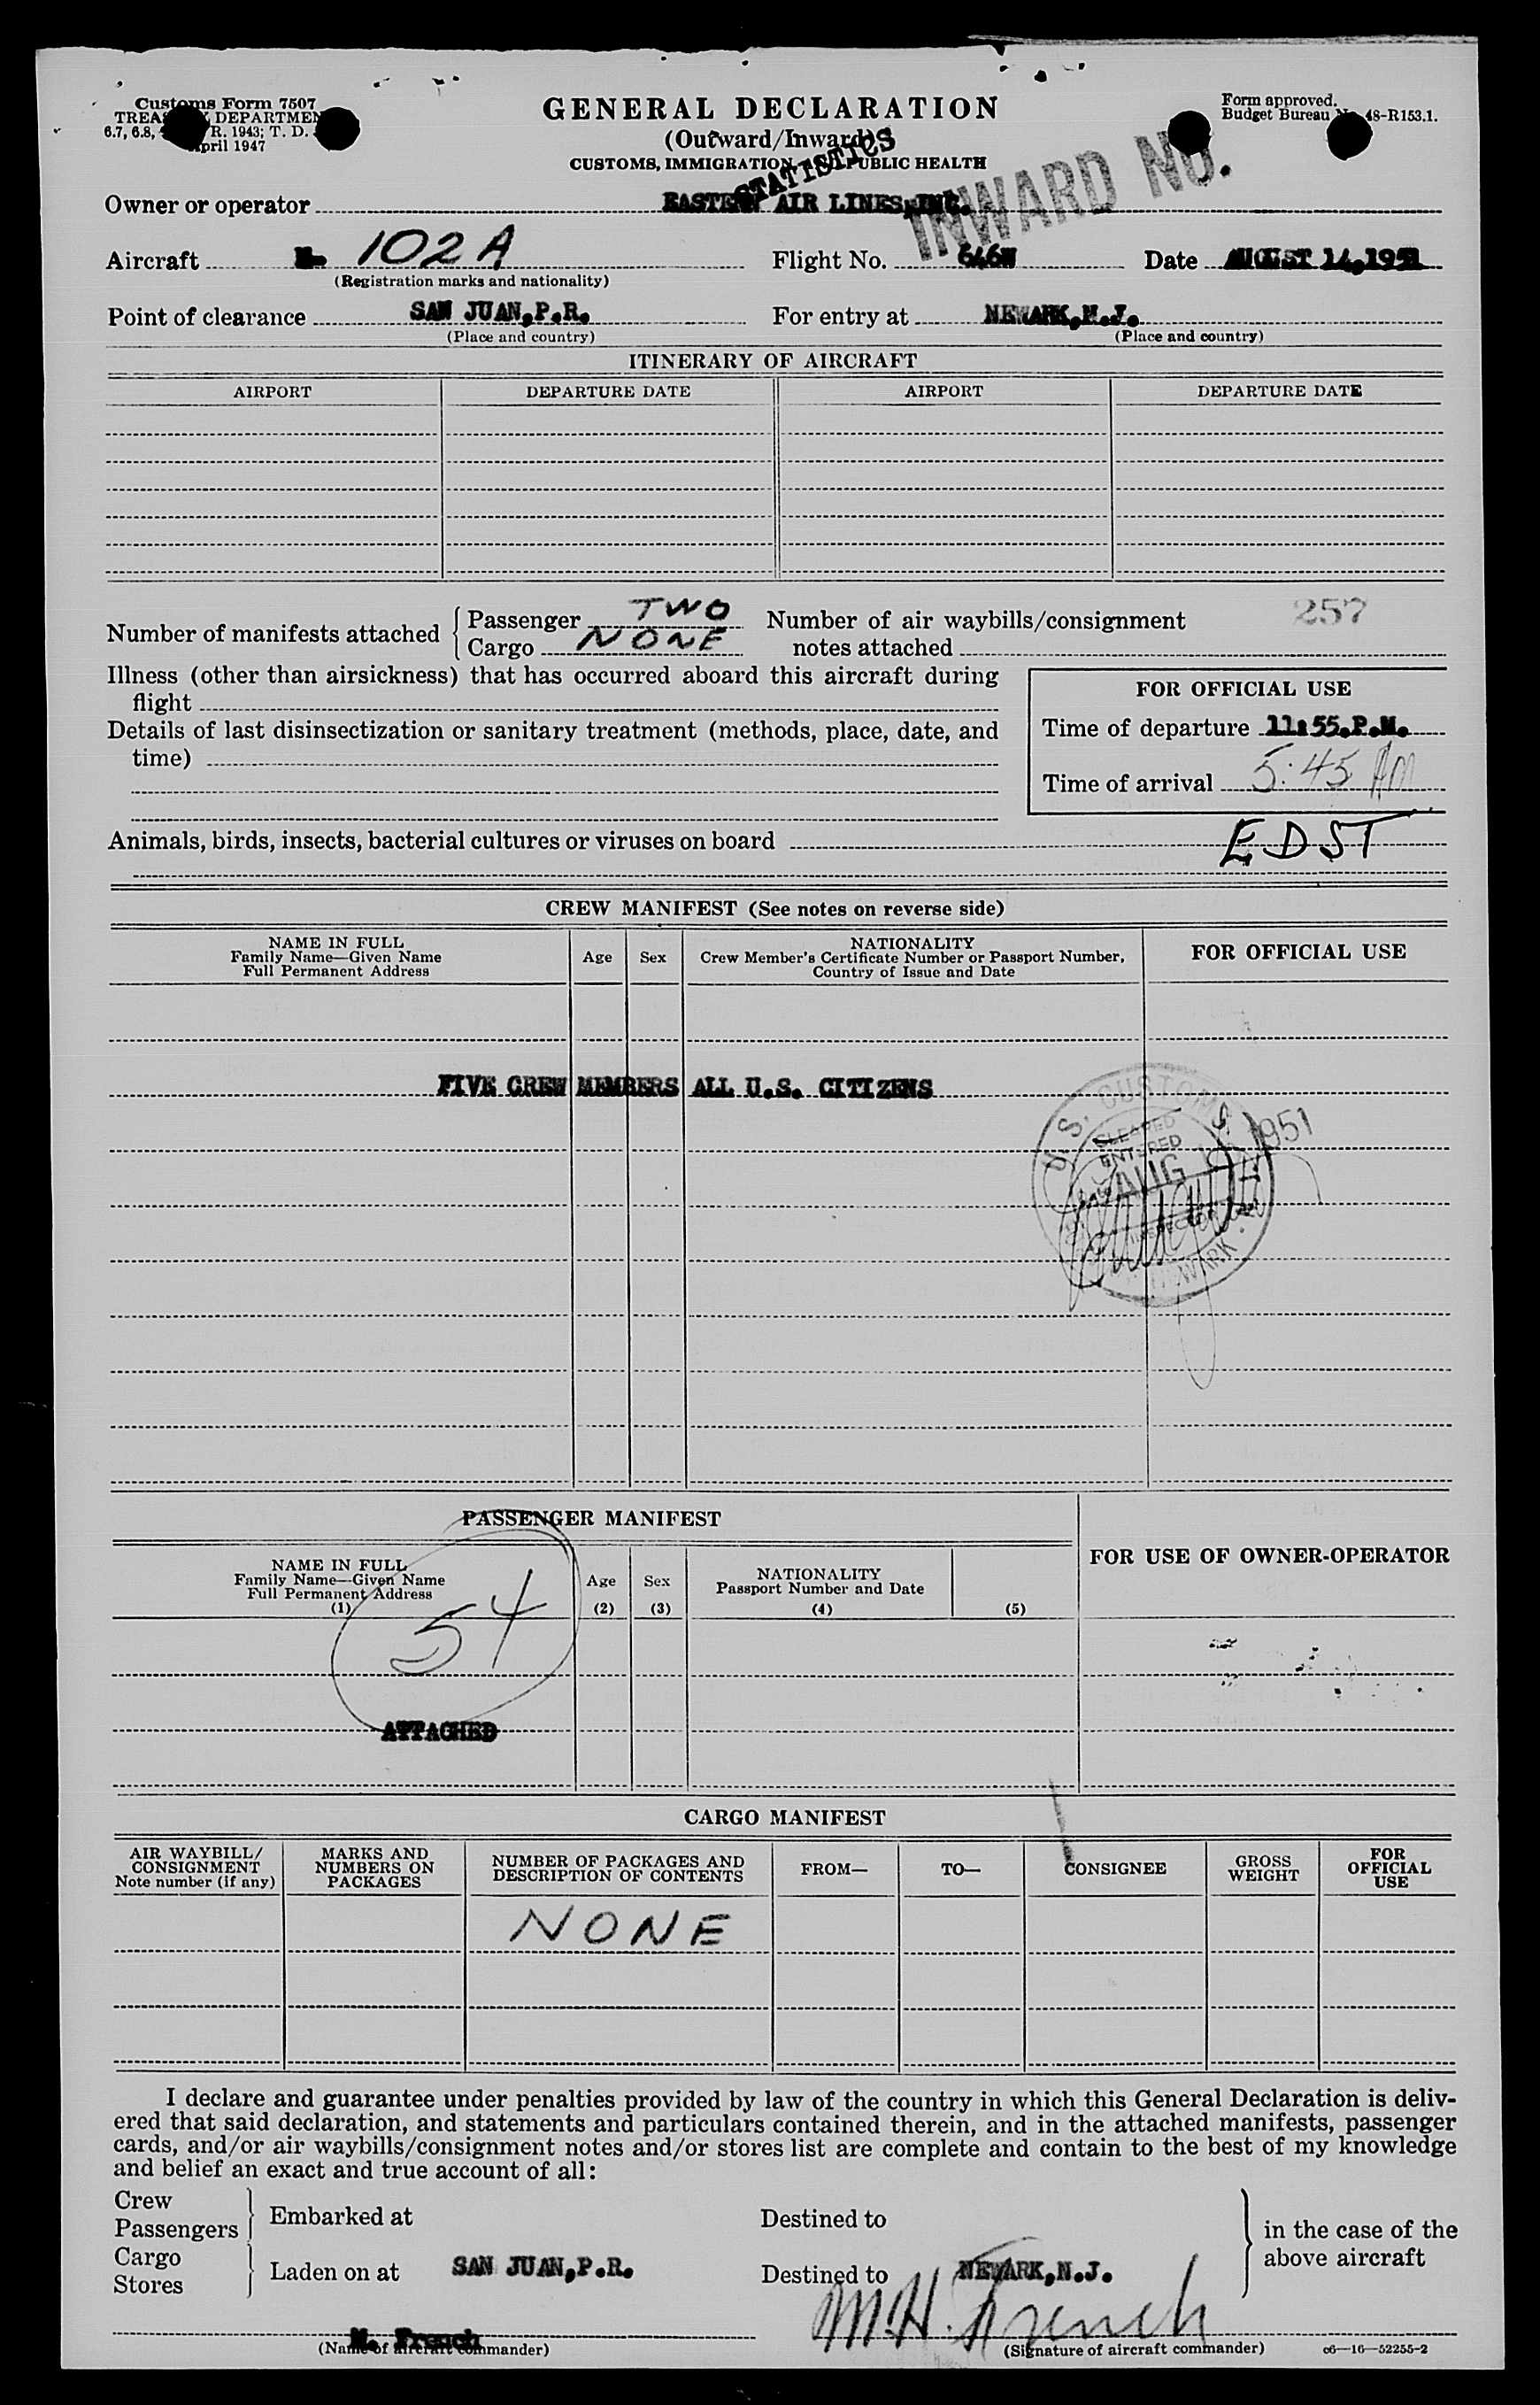 Customs Form 7507
TREASURY DEPARTMENT
6.7, 6.8, R. 1943; T. D.
April 1947
GENERAL DECLARATION
(Outward/Inward)
CUSTOMS, IMMIGRATION PUBLIC HEALTH
STATISTICS
INWARD NO.
Form approved.
Budget Bureau No. 48-R153.1.
Owner or operator EASTERN AIR LINES, INC.
Aircraft N- 102A Flight No. 646 Date AUGUST 14,1951
(Registration marks and nationality)
Point of clearance SAN JUAN,P.R. For entry at NEWARK,N.J.
(Place and country) (Place and country)
ITINERARY OF AIRCRAFT
AIRPORT DEPARTURE DATE AIRPORT DEPARTURE DATE
Number of manifests attached Passenger TWO Number of air waybills/consignment 257
Cargo NONE notes attached
Illness (other than airsickness) that has occurred aboard this aircraft during
flight
Details of last disinsectization or sanitary treatment (methods, place, date, and
time)
FOR OFFICIAL USE
Time of departure 11:55.P.M.
Time of arrival 5:45 AM
EDST
Animals, birds, insects, bacterial cultures or viruses on board
CREW MANIFEST (See notes on reverse side)
NAME IN FULL
Family Name—Given Name
Full Permanent Address
Age
Sex
NATIONALITY
Crew Member's Certificate Number or Passport Number,
Country of Issue and Date
FOR OFFICIAL USE
FIVE CREW MEMBERS ALL U.S. CITIZENS
U.S. CUSTOMS
CLEARED
ENTERED
AUG 1951
NEWARK
PASSENGER MANIFEST
NAME IN FULL
Family Name—Given Name
Full Permanent Address
(1)
Age
(2)
Sex
(3)
NATIONALITY
Passport Number and Date
(4)
(5)
FOR USE OF OWNER-OPERATOR
54
ATTACHED
CARGO MANIFEST
AIR WAYBILL/
CONSIGNMENT
Note number (if any)
MARKS AND
NUMBERS ON
PACKAGES
NUMBER OF PACKAGES AND
DESCRIPTION OF CONTENTS
FROM—
TO—
CONSIGNEE
GROSS
WEIGHT
FOR
OFFICIAL
USE
NONE
I declare and guarantee under penalties provided by law of the country in which this General Declaration is deliv-
ered that said declaration, and statements and particulars contained therein, and in the attached manifests, passenger
cards, and/or air waybills/consignment notes and/or stores list are complete and contain to the best of my knowledge
and belief an exact and true account of all:
Crew
Passengers
Embarked at
Destined to
Cargo
Stores
Laden on at SAN JUAN,P.R.
Destined to NEWARK,N.J.
in the case of the
above aircraft
M. French
(Name of aircraft commander)
M.H. French
(Signature of aircraft commander)
c6—16—52255-2